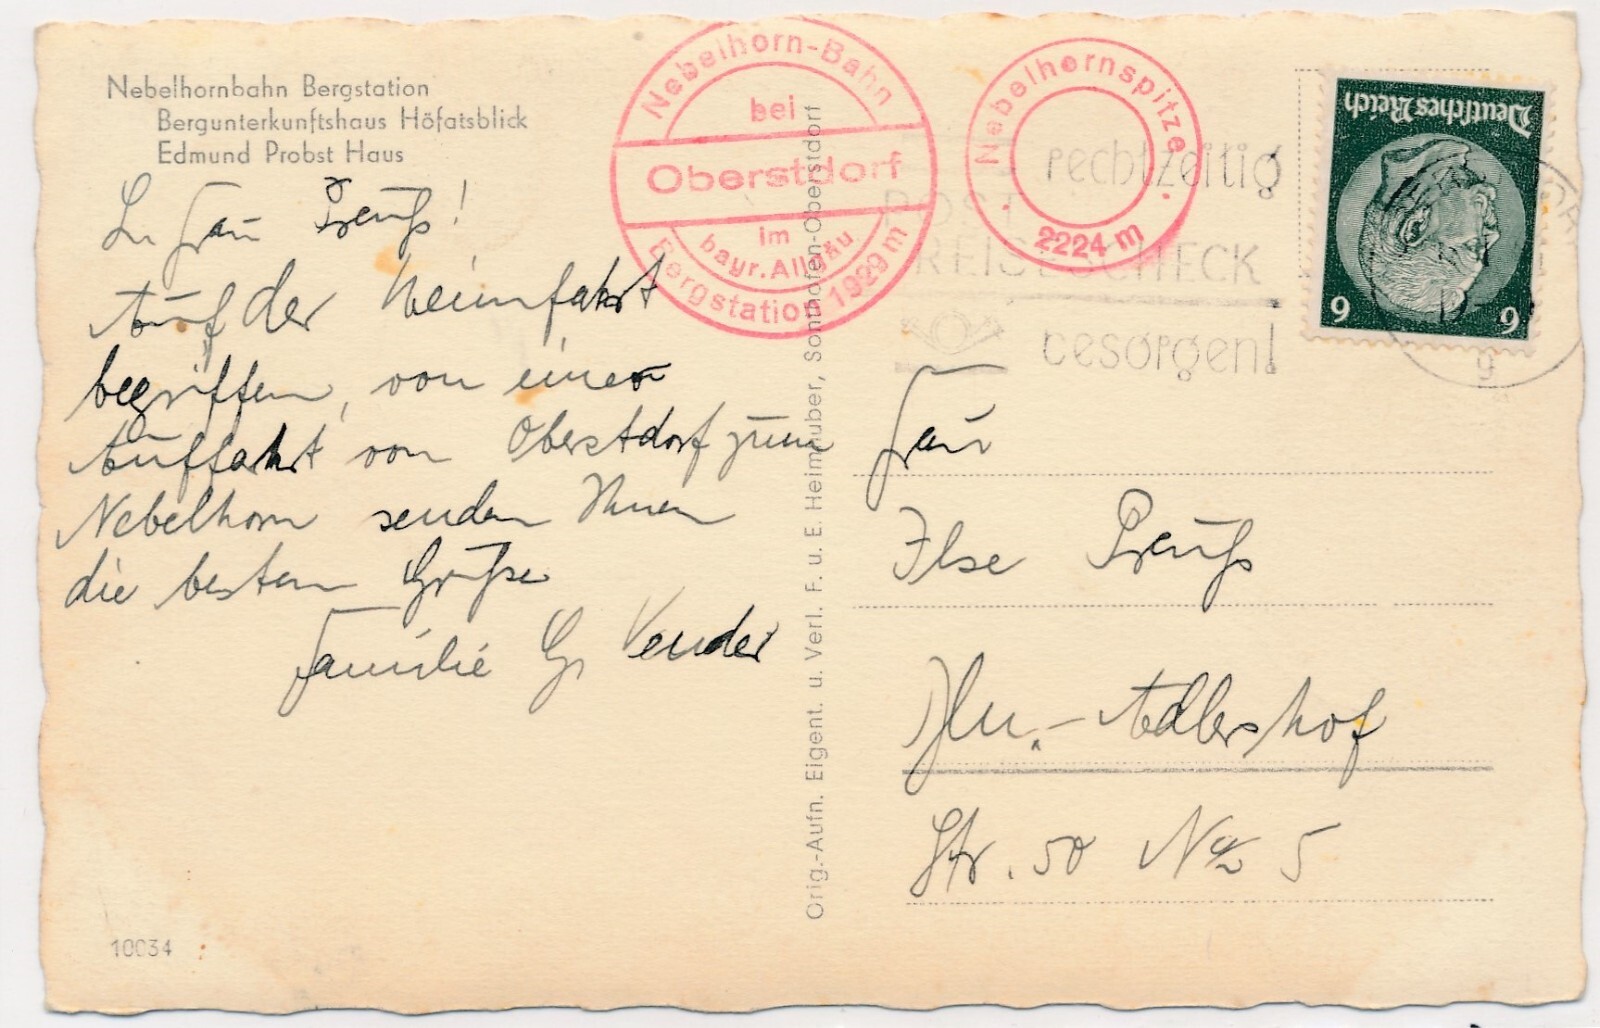 Nebelhornbahn Bergstation
Bergunterkunftshaus Höfatsblick
Edmund Probst Haus
L. Frau Preuß!
Auf der Heimfahrt
begriffen, von einer
Auffahrt von Oberstdorf zum
Nebelhorn senden Ihnen
die besten Grüße
Familie G. Vender
10034
Nebelhorn-Bahn
bei
Oberstdorf
im
bayr. Allgäu
Bergstation 1929 m
Nebelhornspitze
2224 m
rechtzeitig
POST
REISESCHECK
besorgen!
Deutsches Reich
6 6
g
Orig.-Aufn. Eigent. u. Verl. F. u. E. Heimhuber, Sonthofen-Oberstdorf
Frau
Ilse Preuß
Bln.-Adlershof
Str. 50 No 5